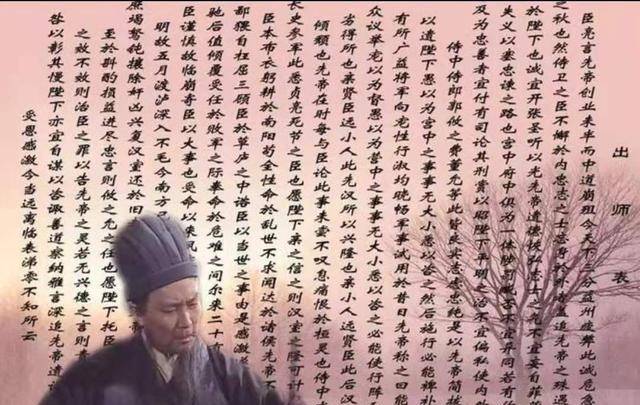 出师表
臣亮言先帝创业未半而中道崩殂今天下三分益州疲弊此诚危急
之秋也然侍卫之臣不懈於内忠志之士忘身於外者盖追先帝之殊遇
於陛下也诚宜开张圣听以光先帝遗德恢弘志士之气不宜妄自菲薄
失义以塞忠谏之路也宫中府中俱为一体陟罚臧否不宜异同若有
及为忠善者宜付有司论其刑赏以昭陛下平明之治不宜偏私使内外
侍中侍郎郭攸之费董允等此皆良实志虑忠纯是以先帝简拔
以遗陛下愚以为宫中之事事无大小悉以咨之然后施行必能裨补
有所广益将军向宠性行淑均晓畅军事试用於昔日先帝称之曰能
众议举宠以为督愚以为营中之事事无大小悉以咨之必能使行阵
劣得所也亲贤臣远小人此先汉所以兴隆也亲小人远贤臣此后汉
倾颓也先帝在时每与臣论此事未尝不叹息痛恨於桓灵也侍中
长史参军此悉贞亮死节之臣也愿陛下亲之信之则汉室之隆可计
臣本布衣躬耕於南阳苟全性命於乱世不求闻达於诸侯先帝
鄙猥自枉屈三顾臣於草庐之中谘臣以当世之事由是感激
驰后值倾覆受任於败军之际奉命於危难之间尔来二十
臣谨慎故临崩寄臣以大事也受命以来夙
明故五月渡泸深入不毛今南方已
庶竭驽钝攘除奸凶兴复汉室还於旧
至於斟酌损益进尽忠言则攸之允之任也愿陛下托臣
之效不效则治臣之罪以告先帝之灵若无兴德之言则责
咎以彰其慢陛下亦宜自谋以咨诹善道察纳雅言深追先帝遗诏
受恩感激今当远离临表涕零不知所云